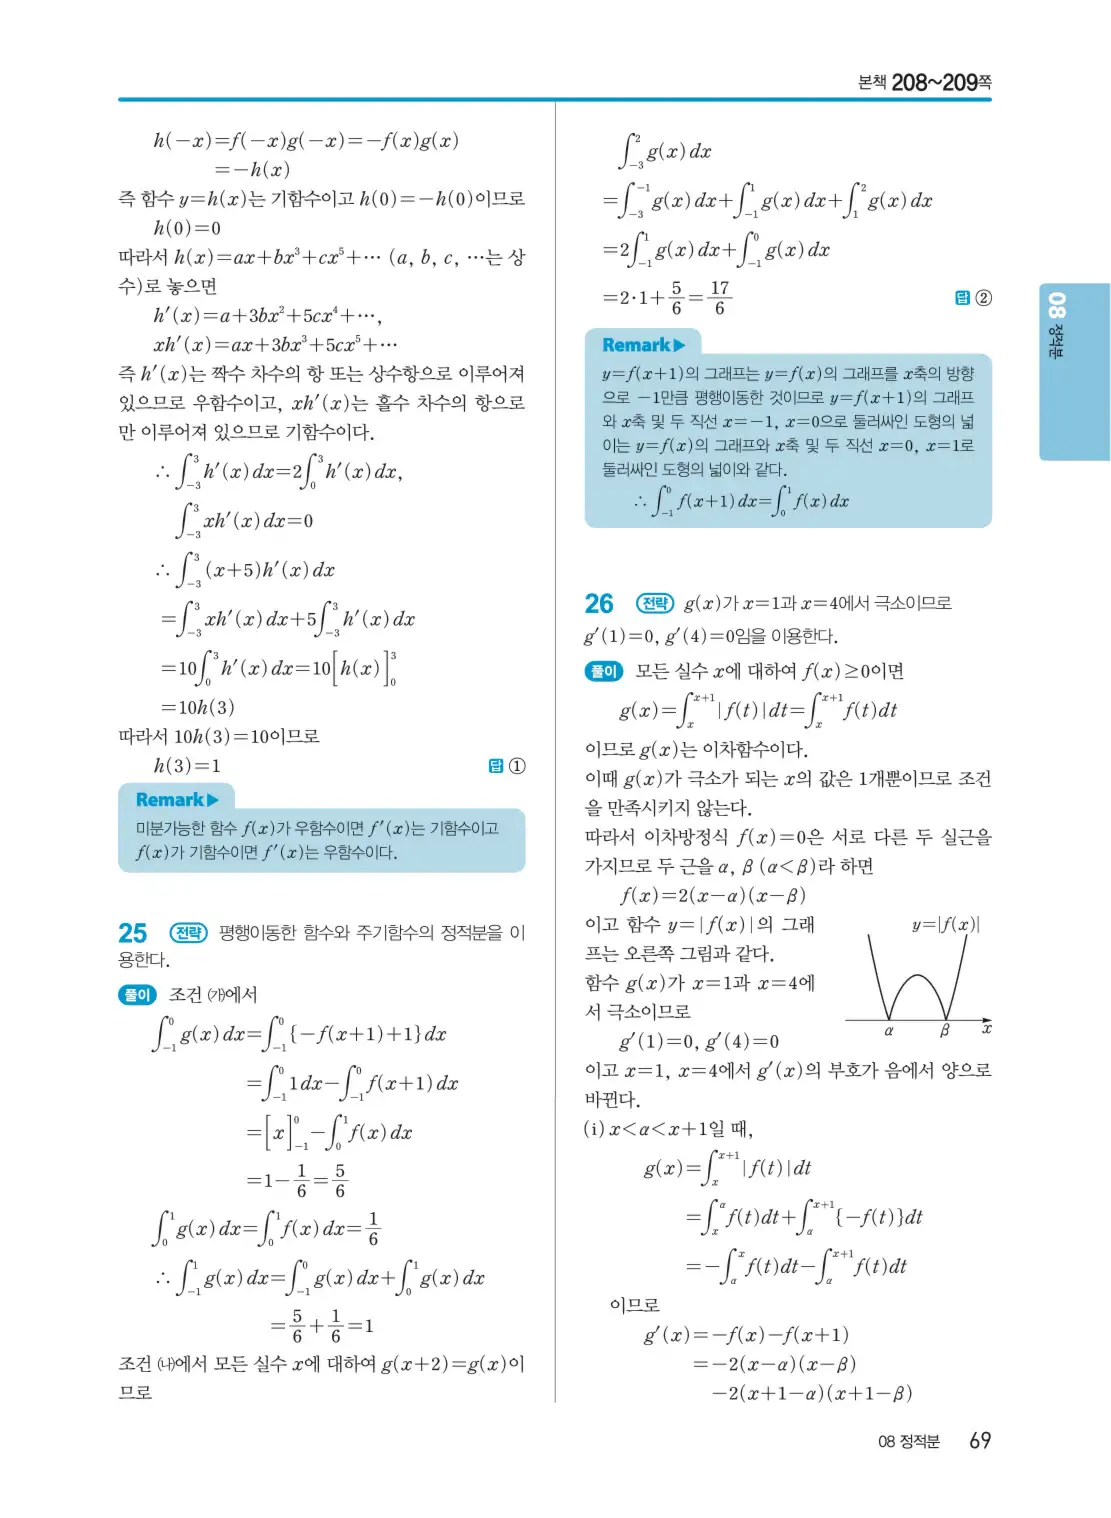 본책 208~209쪽
h(-x)=f(-x)g(-x)=-f(x)g(x)
=-h(x)
즉 함수 y=h(x)는 기함수이고 h(0)=-h(0)이므로
h(0)=0
따라서 h(x)=ax+bx³+cx⁵+⋯ (a, b, c, ⋯는 상
수)로 놓으면
h′(x)=a+3bx²+5cx⁴+⋯,
xh′(x)=ax+3bx³+5cx⁵+⋯
즉 h′(x)는 짝수 차수의 항 또는 상수항으로 이루어져
있으므로 우함수이고, xh′(x)는 홀수 차수의 항으로
만 이루어져 있으므로 기함수이다.
∴ ∫_{-3}^{3} h′(x)dx=2∫_{0}^{3} h′(x)dx,
∫_{-3}^{3} xh′(x)dx=0
∴ ∫_{-3}^{3} (x+5)h′(x)dx
=∫_{-3}^{3} xh′(x)dx+5∫_{-3}^{3} h′(x)dx
=10∫_{0}^{3} h′(x)dx=10[h(x)]_{0}^{3}
=10h(3)
따라서 10h(3)=10이므로
h(3)=1 답 ①
Remark▶
미분가능한 함수 f(x)가 우함수이면 f′(x)는 기함수이고
f(x)가 기함수이면 f′(x)는 우함수이다.
25 전략 평행이동한 함수와 주기함수의 정적분을 이
용한다.
풀이 조건 ㈎에서
∫_{-1}^{0} g(x)dx=∫_{-1}^{0} {-f(x+1)+1}dx
=∫_{-1}^{0} 1dx-∫_{-1}^{0} f(x+1)dx
=[x]_{-1}^{0}-∫_{0}^{1} f(x)dx
=1-1/6=5/6
∫_{0}^{1} g(x)dx=∫_{0}^{1} f(x)dx=1/6
∴ ∫_{-1}^{1} g(x)dx=∫_{-1}^{0} g(x)dx+∫_{0}^{1} g(x)dx
=5/6+1/6=1
조건 ㈏에서 모든 실수 x에 대하여 g(x+2)=g(x)이
므로
∫_{-3}^{2} g(x)dx
=∫_{-3}^{-1} g(x)dx+∫_{-1}^{1} g(x)dx+∫_{1}^{2} g(x)dx
=2∫_{-1}^{1} g(x)dx+∫_{-1}^{0} g(x)dx
=2·1+5/6=17/6 답 ②
Remark▶
y=f(x+1)의 그래프는 y=f(x)의 그래프를 x축의 방향
으로 -1만큼 평행이동한 것이므로 y=f(x+1)의 그래프
와 x축 및 두 직선 x=-1, x=0으로 둘러싸인 도형의 넓
이는 y=f(x)의 그래프와 x축 및 두 직선 x=0, x=1로
둘러싸인 도형의 넓이와 같다.
∴ ∫_{-1}^{0} f(x+1)dx=∫_{0}^{1} f(x)dx
26 전략 g(x)가 x=1과 x=4에서 극소이므로
g′(1)=0, g′(4)=0임을 이용한다.
풀이 모든 실수 x에 대하여 f(x)≥0이면
g(x)=∫_{x}^{x+1} |f(t)|dt=∫_{x}^{x+1} f(t)dt
이므로 g(x)는 이차함수이다.
이때 g(x)가 극소가 되는 x의 값은 1개뿐이므로 조건
을 만족시키지 않는다.
따라서 이차방정식 f(x)=0은 서로 다른 두 실근을
가지므로 두 근을 α, β (α<β)라 하면
f(x)=2(x-α)(x-β)
이고 함수 y=|f(x)|의 그래
프는 오른쪽 그림과 같다.
함수 g(x)가 x=1과 x=4에
서 극소이므로
g′(1)=0, g′(4)=0
y=|f(x)|
α β x
이고 x=1, x=4에서 g′(x)의 부호가 음에서 양으로
바뀐다.
(i) x<α<x+1일 때,
g(x)=∫_{x}^{x+1} |f(t)|dt
=∫_{x}^{α} f(t)dt+∫_{α}^{x+1} {-f(t)}dt
=-∫_{α}^{x} f(t)dt-∫_{α}^{x+1} f(t)dt
이므로
g′(x)=-f(x)-f(x+1)
=-2(x-α)(x-β)
-2(x+1-α)(x+1-β)
08 정적분
08 정적분 69